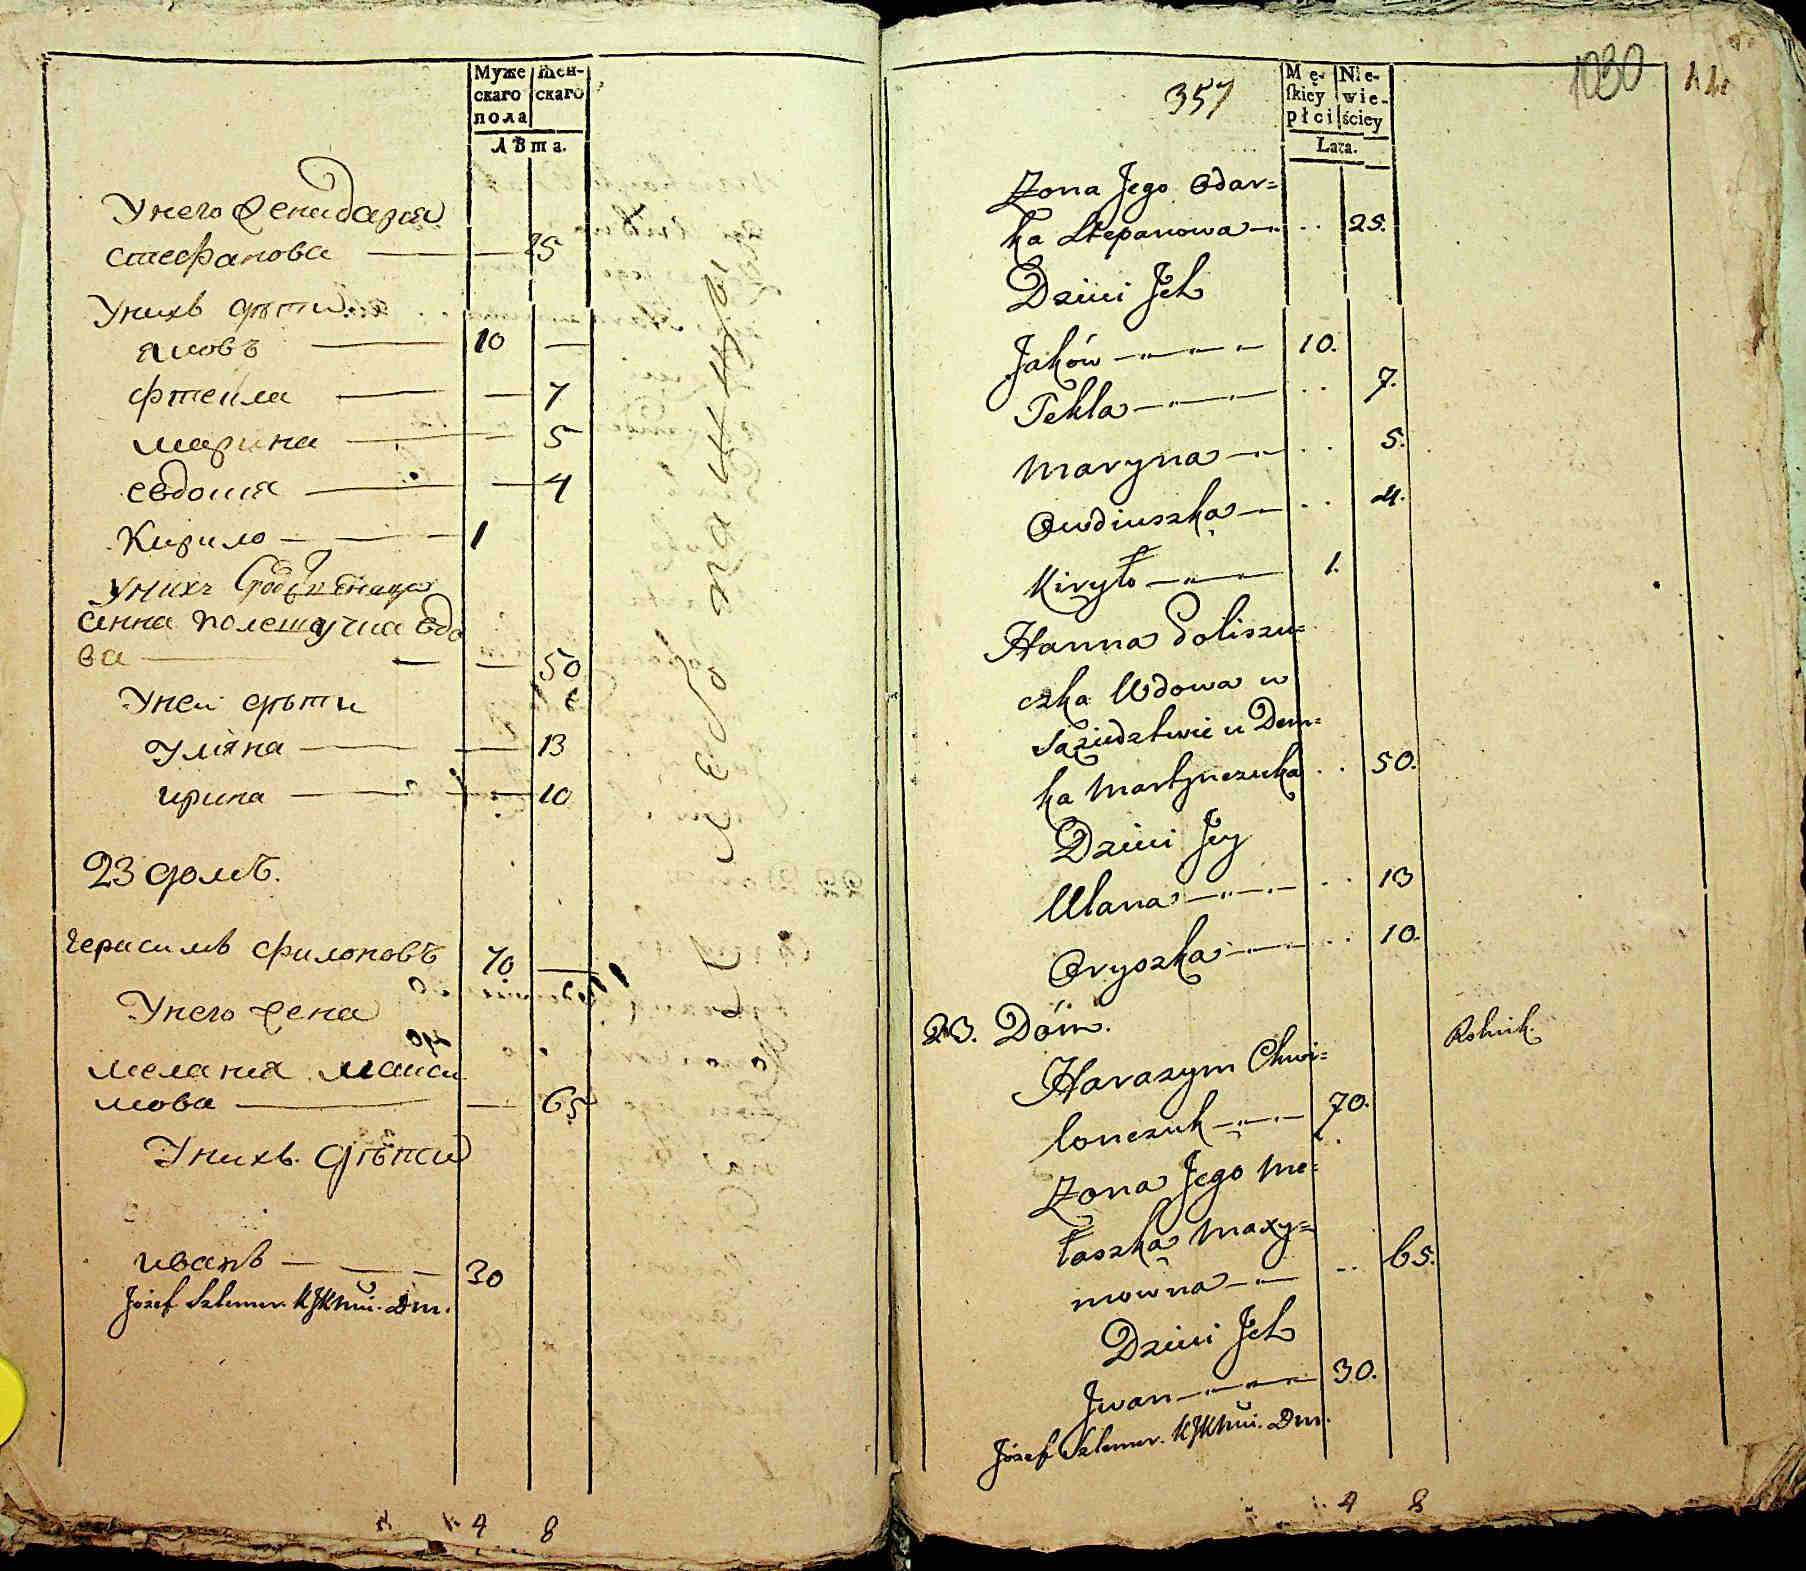 Муже
скаго
пола
жен-
скаго
Лѣта.
Унего жена дария
стефанова — — 25
Унихъ дѣти
яковъ — 10 —
фтекла — — 7
марина — — 5
евдокия — — 4
Кирило — — — 1
Унихъ
анна полещучка вдо
ва — — — 50
Уней дѣти
Уляна — — 13
ирина — — 10
23 домъ.
Герасимъ филоновъ 70 —
Унего жена
мелания макси
мова — — 65
Унихъ дѣти
иванъ — — — 30
Józef Szlemer. KJKMci. Dm.
4 8
357
1030
Mę-
ſkiey
płci
Nie-
wie-
ściey
Lata.
Zona Jego Odar=
ka Stepanowa — .. 25.
Dzieci Jch
Jaków — 10.
Tekla — .. 7.
Maryna — .. 5.
Owdiuszka — .. 4.
Kiryło — 1.
Hanna Poliszu=
czka Wdowa w
Sąsiedztwie u Dem=
ka Martynczuka .. 50.
Dzieci Jey
Ulana — .. 13
Oryszka — .. 10.
23. Dóm.
Rolnik.
Harasym Chwi=
lonczuk — 70.
Zona Jego Me=
łaszka Maxy=
mowna — .. 65.
Dzieci Jch
Jwan — 30.
Józef Szlemer. KJKMci. Dm.
4 8